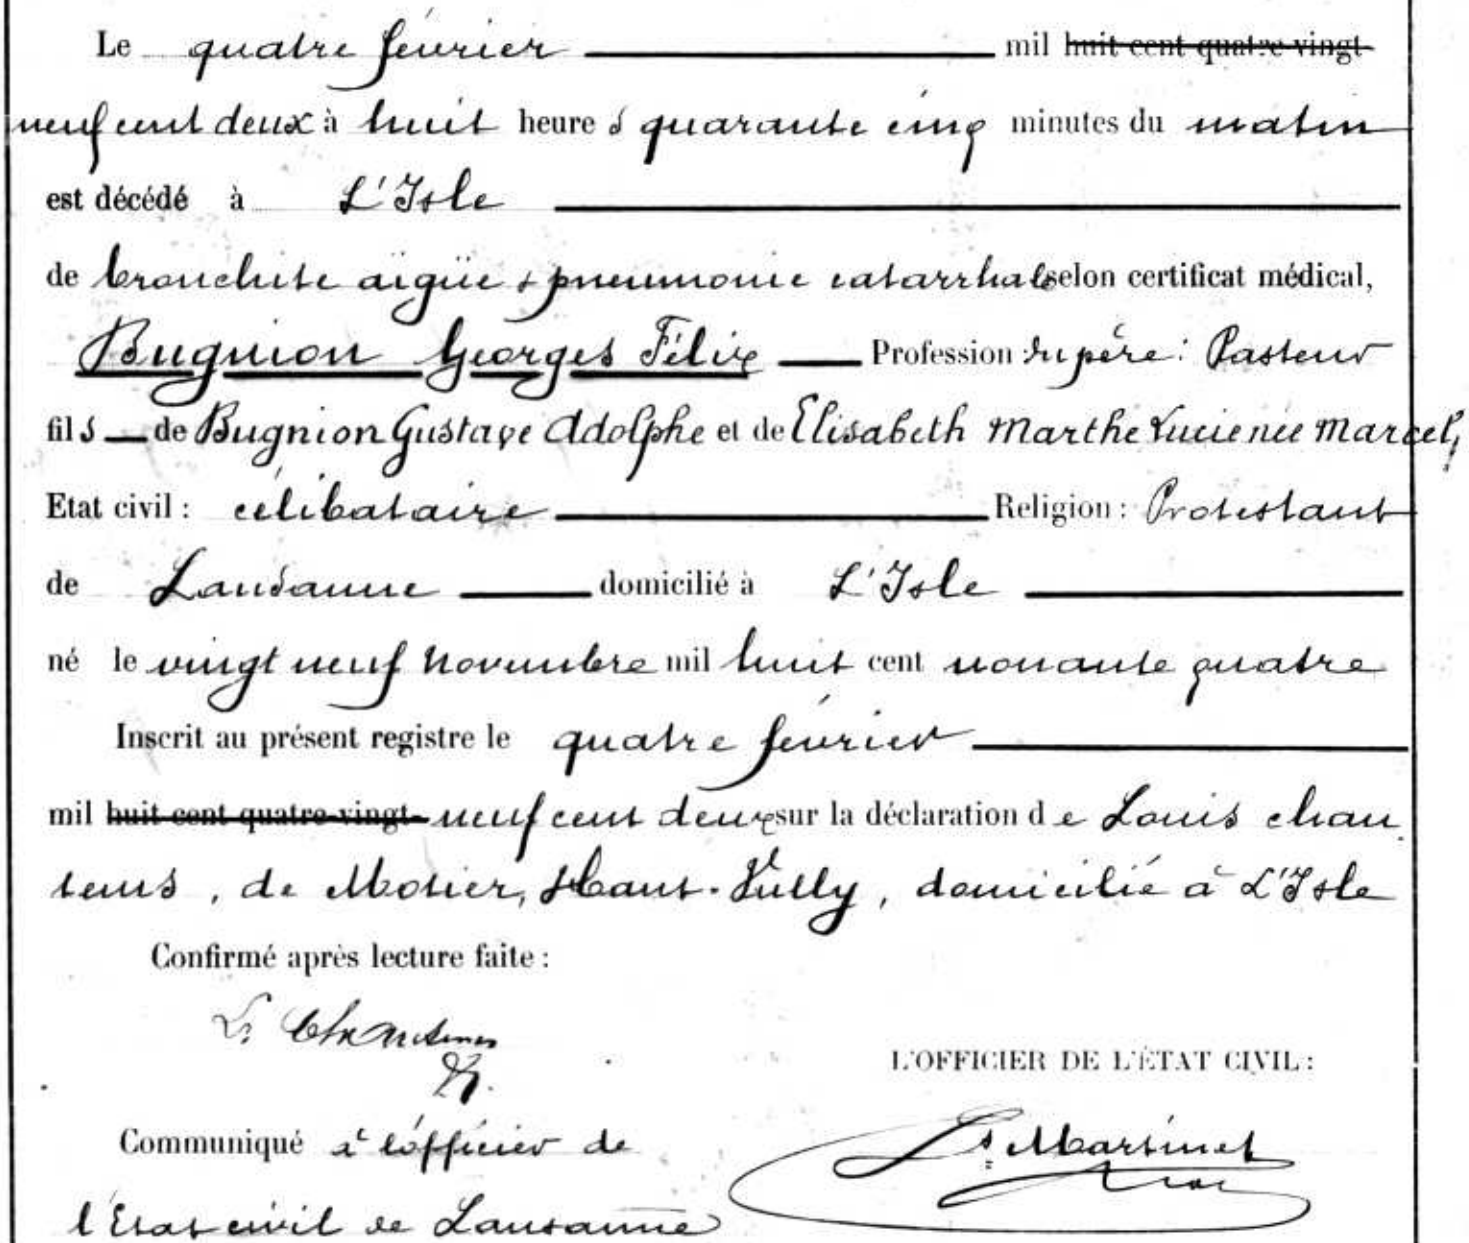 Le quatre février mil huit cent quatre-vingt-
neuf cent deux à huit heures quarante cinq minutes du matin
est décédé à L'Isle
de bronchite aigüe & pneumonie catarrhale selon certificat médical,
Bugnion Georges Félix Profession du père: Pasteur
fils de Bugnion Gustave Adolphe et de Elisabeth Marthe Lucie née Marcel,
Etat civil: célibataire Religion: Protestant
de Lausanne domicilié à L'Isle
né le vingt neuf Novembre mil huit cent nonante quatre
Inscrit au présent registre le quatre février
mil huit cent quatre-vingt- neuf cent deux sur la déclaration de Louis Chau
tems, de Motier, Haut-Vully, domicilié à L'Isle
Confirmé après lecture faite:
Ls Chautems
L'OFFICIER DE L'ÉTAT CIVIL:
Communiqué à l'officier de
Ls Martinet
l'Etat civil de Lausanne